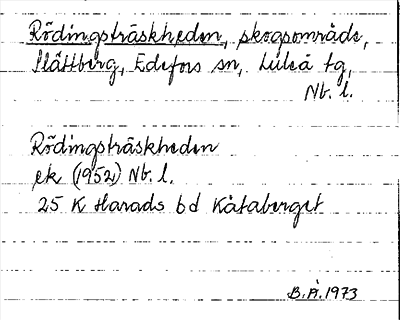 Rödingsträskheden, skogsområde,
Slättberg, Edefors sn, Luleå tg,
Nb. l.
Rödingsträskheden
ek (1952) Nb. l.
25 K Harads bd Kåtaberget
B.Å. 1973